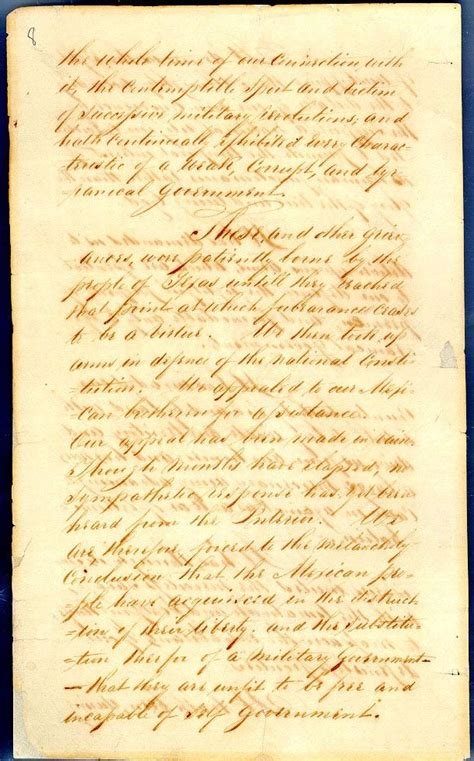 8
the whole time of our connection with
it, the contemptible sport and victim
of successive military revolutions, and
hath continually exhibited every charac-
-teristic of a weak, corrupt, and ty-
-ranical Government.
These, and other griev-
-ances, were patiently borne by the
people of Texas untill they reached
that point at which forbearance ceases
to be a virtue. We then took up
arms in defence of the national Consti-
-tution. We appealed to our Mexi-
-can brethren for assistance.
Our appeal has been made in vain.
Though months have elapsed, no
sympathetic response has yet been
heard from the Interior. We
are therefore forced to the melancholy
conclusion that the Mexican peo-
-ple have acquiesced in the destruc-
-tion of their liberty, and the substitu-
-tion therefor of a Military Government—
—that they are unfit to be free and
incapable of Self Government.